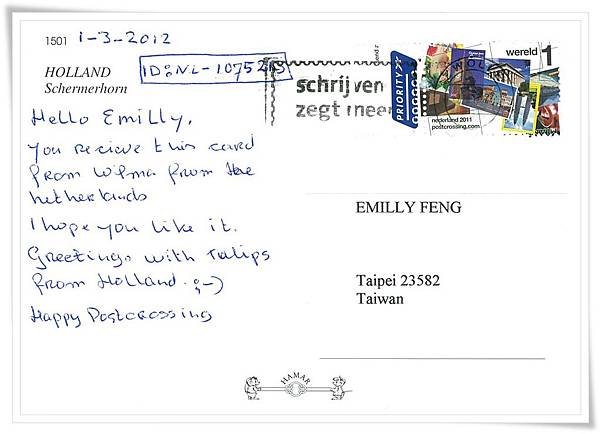 1501 1-3-2012
HOLLAND
Schermerhorn
ID:NL-1075213
Hello Emilly,
you recieve this card
from Wilma from the
netherlands
I hope you like it.
Greetings with Tulips
from Holland. ;-)
Happy Postcrossing
schrijven
zegt meer
PRIORITY
wereld 1
nederland 2011
postcrossing.com
EMILLY FENG
Taipei 23582
Taiwan
HAMAR